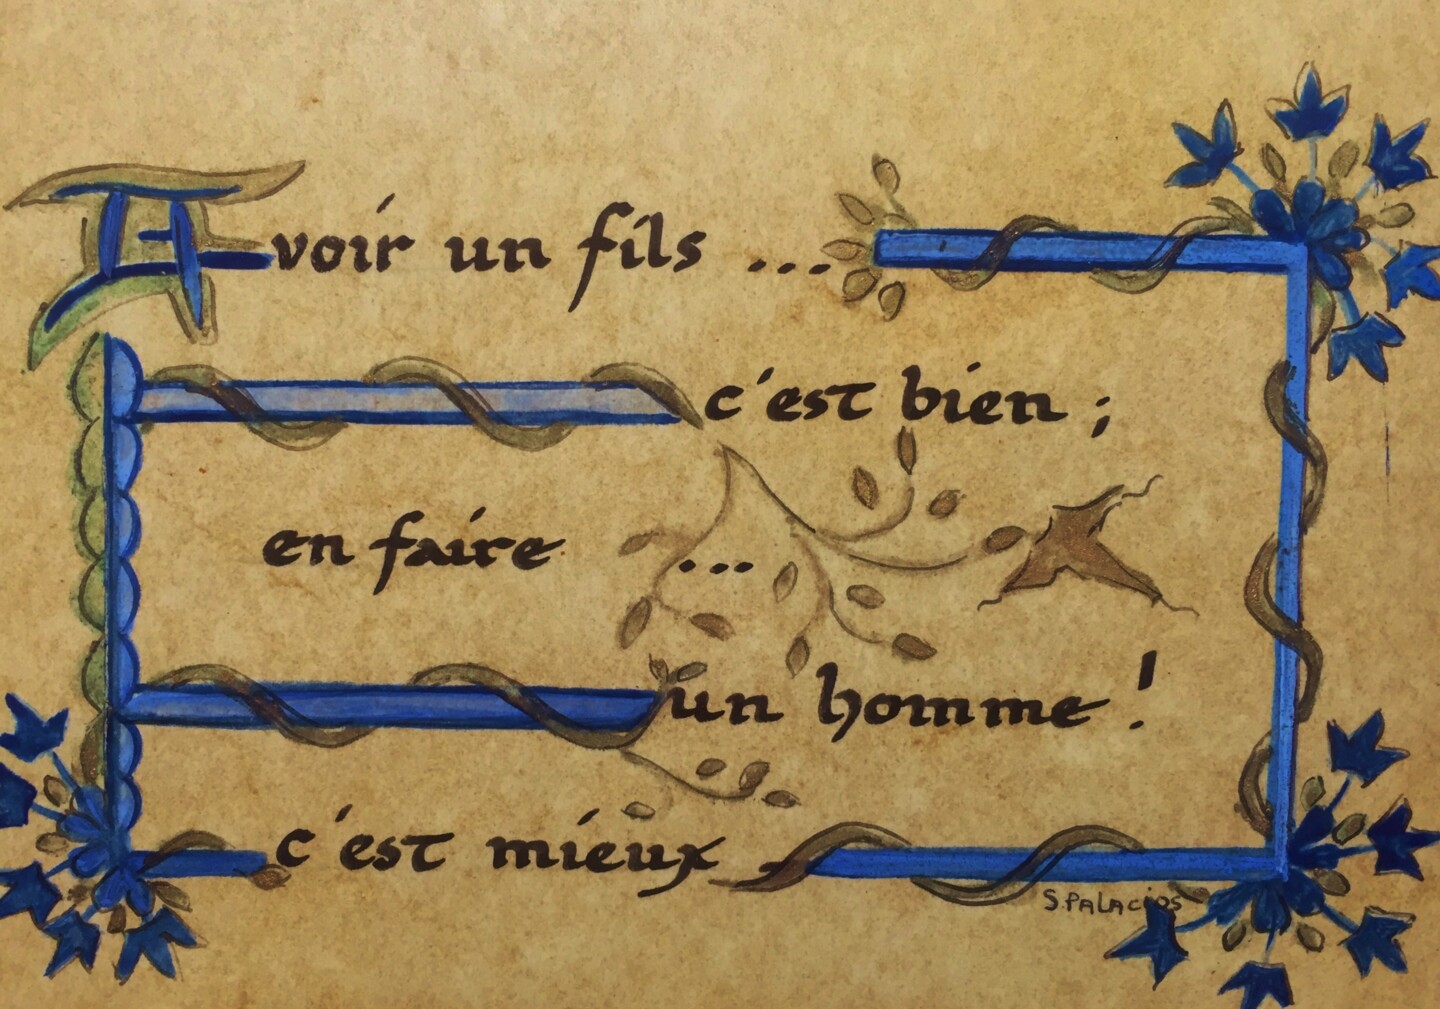 Avoir un fils ...
c'est bien ;
en faire ...
un homme !
c'est mieux
S.PALACIOS